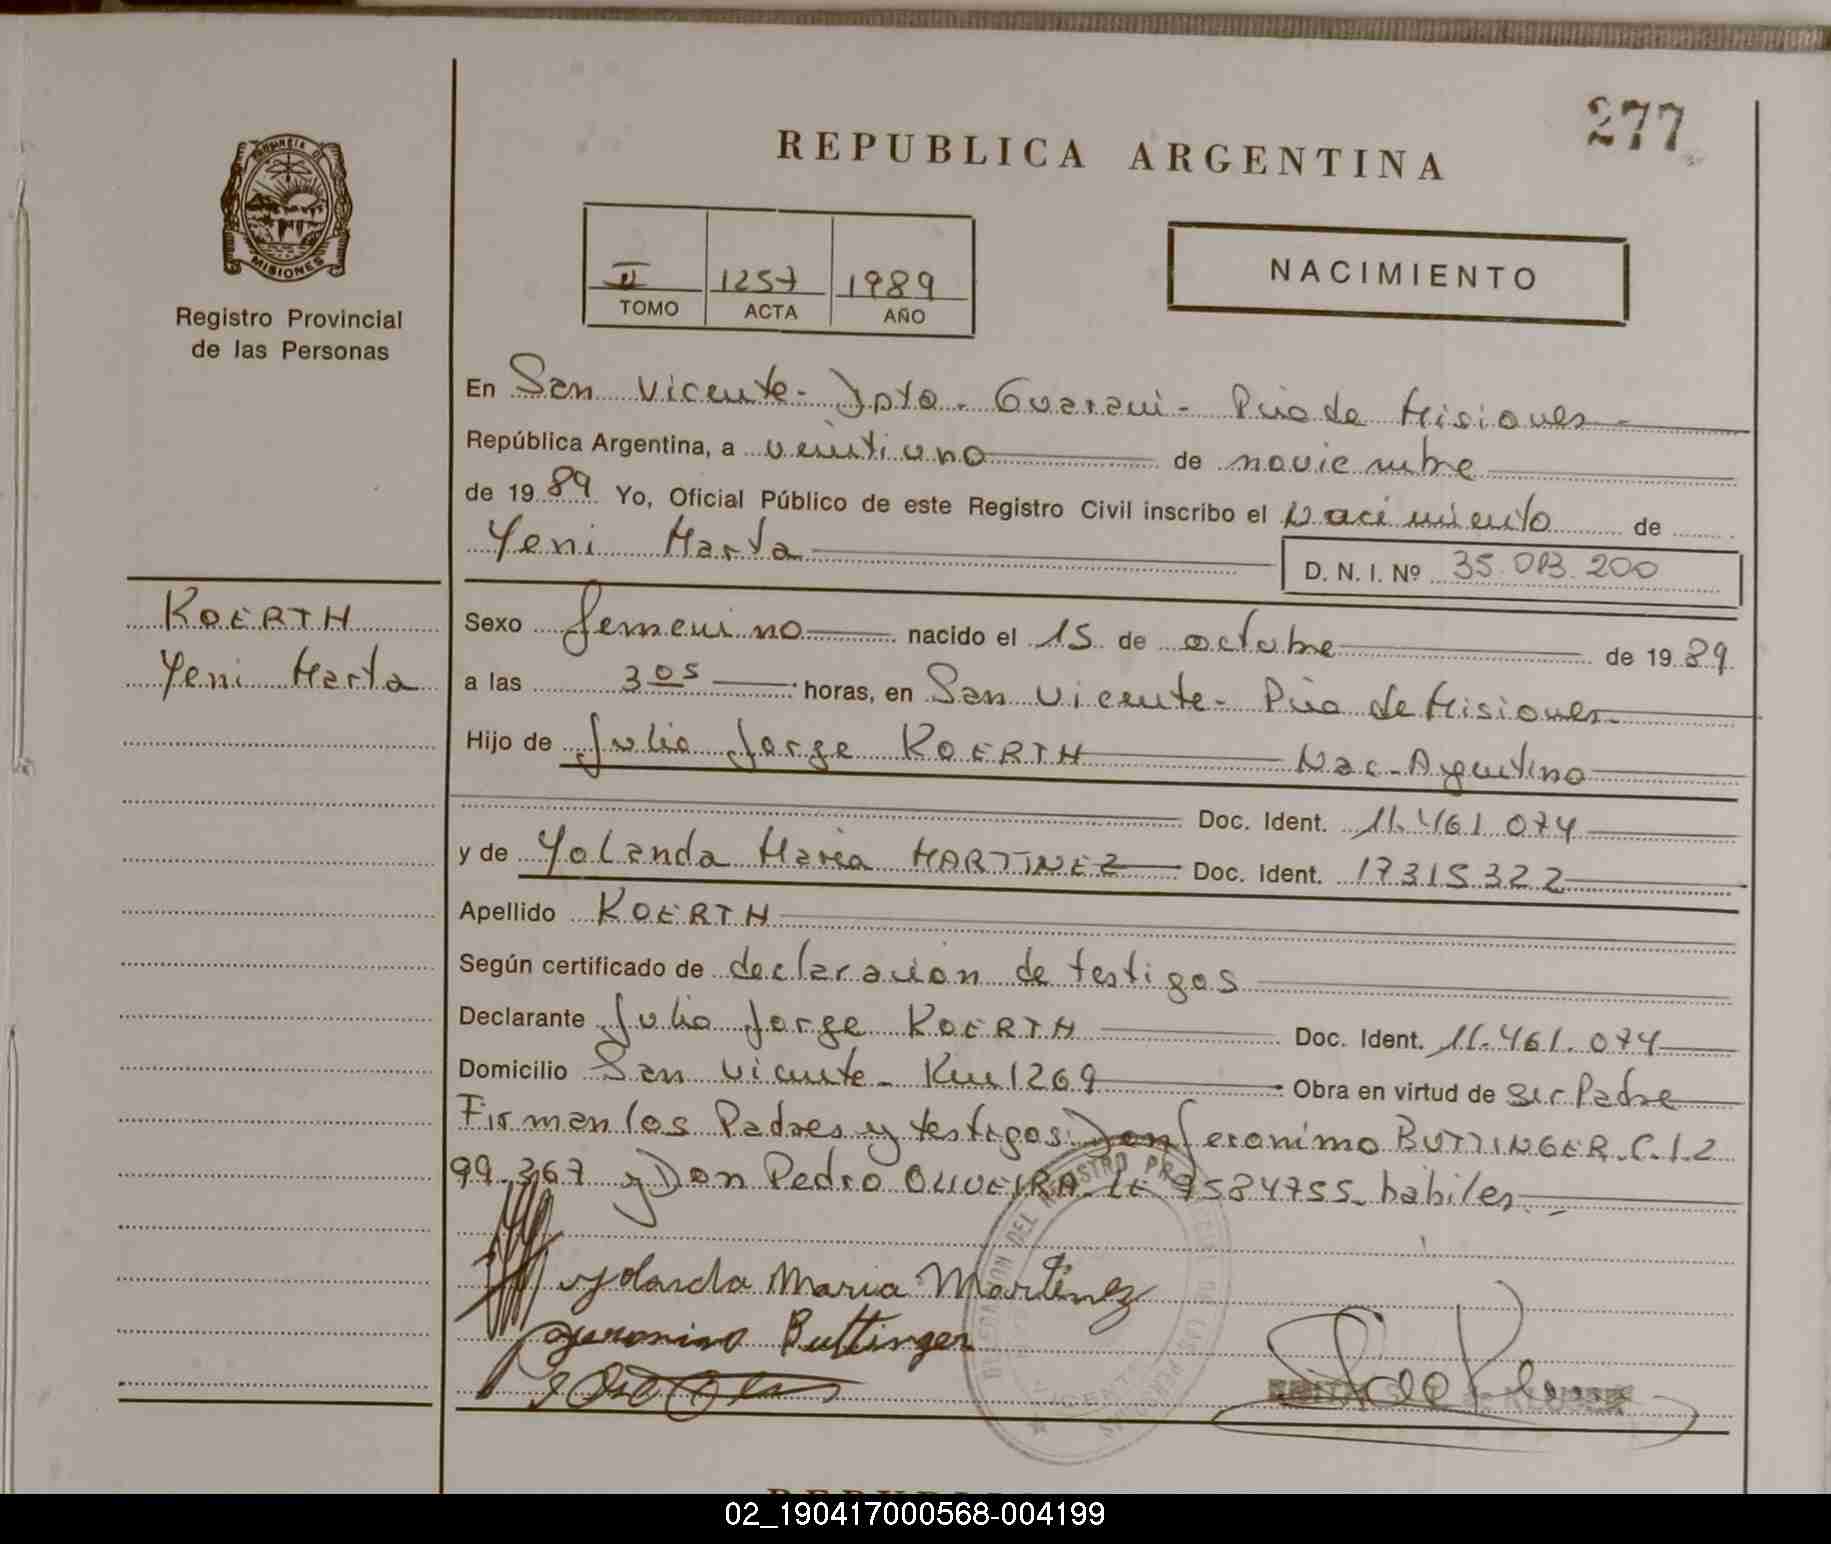 277
REPUBLICA ARGENTINA
PROVINCIA DE
MISIONES
Registro Provincial
de las Personas
II 1257 1989
TOMO ACTA AÑO
NACIMIENTO
En San Vicente - Dpto - Guaraní - Pcia de Misiones -
República Argentina, a veintiuno de noviembre
de 19 89 Yo, Oficial Público de este Registro Civil inscribo el Nacimiento de
Yeni Marta
D. N. I. Nº 35.013.200
KOERTH
Yeni Marta
Sexo femenino nacido el 15 de octubre de 19 89
a las 3 05 horas, en San Vicente - Pcia de Misiones -
Hijo de Julio Jorge KOERTH Nac - Argentino
Doc. Ident. 11.461.074
y de Yolanda María MARTINEZ Doc. Ident. 17315322
Apellido KOERTH
Según certificado de declaración de testigos
Declarante Julio Jorge KOERTH Doc. Ident. 11.461.074
Domicilio San Vicente - Km 1269 Obra en virtud de ser Padre
Firman los Padres y testigos: Don Jeronimo BUTTINGER. C.I. 2
99.367 y Don Pedro OLIVEIRA. LE 9584755 - habiles
Yolanda Maria Martinez
Jeronimo Buttinger
REPUBLICA
02_190417000568-004199